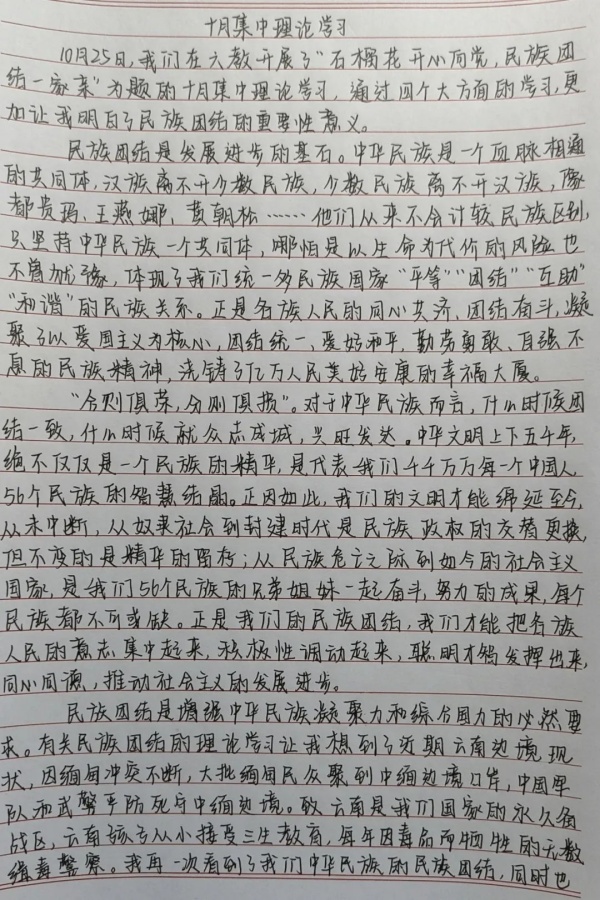 十月集中理论学习
10月25日,我们在六教开展了"石榴花开心向党,民族团
结一家亲"为题的十月集中理论学习,通过四个大方面的学习,更
加让我明白了民族团结的重要性意义。
民族团结是发展进步的基石。中华民族是一个血脉相通
的共同体,汉族离不开少数民族,少数民族离不开汉族,像
都贵玛、王燕娜、黄朝松……他们从来不会计较民族区别,
只坚持中华民族一个共同体,哪怕是以生命为代价的风险也
不曾犹豫,体现了我们统一多民族国家"平等""团结""互助"
"和谐"的民族关系。正是各族人民的同心共济、团结奋斗,凝
聚了以爱国主义为核心,团结统一、爱好和平,勤劳勇敢、自强不
息的民族精神,浇铸了亿万人民美好安康的幸福大厦。
"合则俱荣,分则俱损"。对于中华民族而言,什么时候团
结一致,什么时候就众志成城,兴旺发达。中华文明上下五千年,
绝不仅仅是一个民族的精华,是代表我们千千万万每一个中国人
56个民族的智慧结晶。正因如此,我们的文明才能绵延至今,
从未中断,从奴隶社会到封建时代是民族政权的交替更换,
但不变的是精华的留存;从民族危亡之际到如今的社会主义
国家,是我们56个民族的兄弟姐妹一起奋斗,努力的成果,每个
民族都不可或缺。正是我们的民族团结,我们才能把各族
人民的意志集中起来,积极性调动起来,聪明才智发挥出来,
同心同德,推动社会主义的发展进步。
民族团结是增强中华民族凝聚力和综合国力的必然要
求。有关民族团结的理论学习让我想到了近期云南边境现
状,因缅甸冲突不断,大批缅甸民众聚到中缅边境口岸,中国军
队和武警平防死守中缅边境。致云南是我们国家的永久备
战区,云南孩子从小接受三生教育,每年因毒品而牺牲的无数
缉毒警察。我再一次看到了我们中华民族的民族团结,同时也